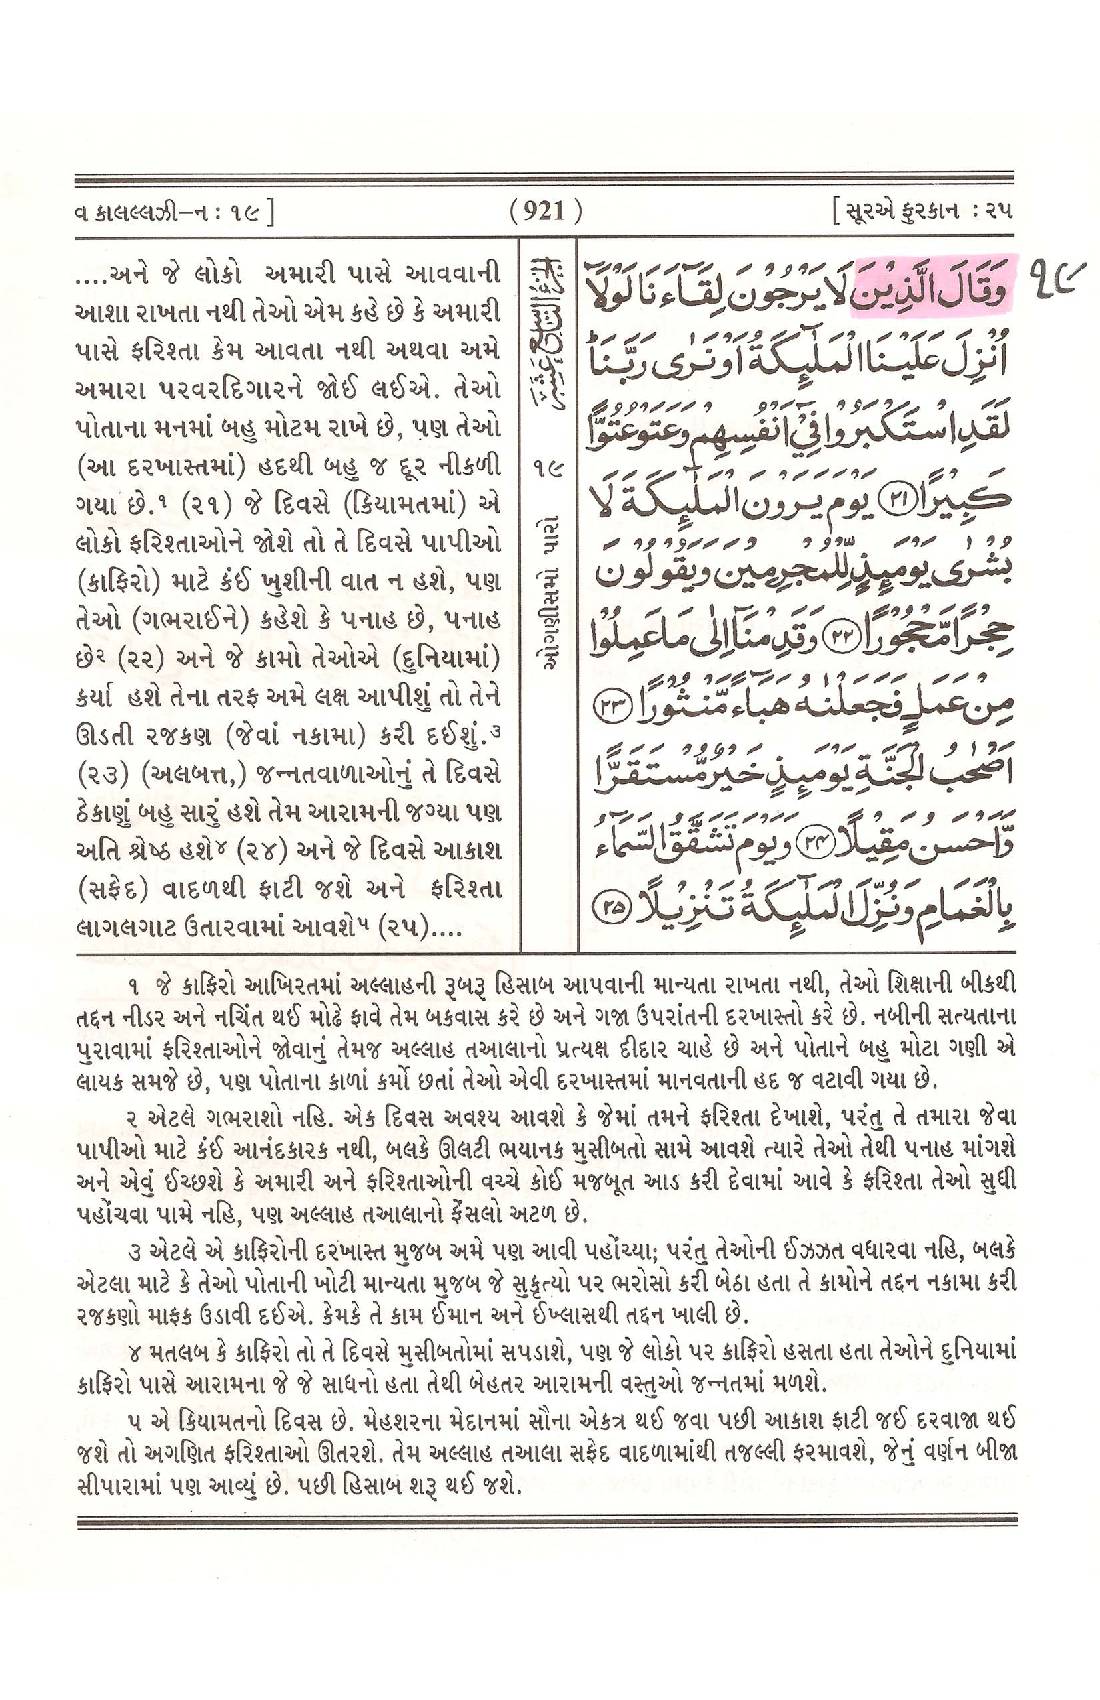 વ કાલલ્લઝી–ન : ૧૯ ]
( 921 )
[ સૂરએ ફુરકાન : ૨૫
....અને જે લોકો અમારી પાસે આવવાની
આશા રાખતા નથી તેઓ એમ કહે છે કે અમારી
પાસે ફરિશ્તા કેમ આવતા નથી અથવા અમે
અમારા પરવરદિગારને જોઈ લઈએ. તેઓ
પોતાના મનમાં બહુ મોટમ રાખે છે, પણ તેઓ
(આ દરખાસ્તમાં) હદથી બહુ જ દૂર નીકળી
ગયા છે.૧ (૨૧) જે દિવસે (કિયામતમાં) એ
લોકો ફરિશ્તાઓને જોશે તો તે દિવસે પાપીઓ
(કાફિરો) માટે કંઈ ખુશીની વાત ન હશે, પણ
તેઓ (ગભરાઈને) કહેશે કે પનાહ છે, પનાહ
છે૨ (૨૨) અને જે કામો તેઓએ (દુનિયામાં)
કર્યા હશે તેના તરફ અમે લક્ષ આપીશું તો તેને
ઊડતી રજકણ (જેવાં નકામા) કરી દઈશું.૩
(૨૩) (અલબત્ત,) જન્નતવાળાઓનું તે દિવસે
ઠેકાણું બહુ સારું હશે તેમ આરામની જગ્યા પણ
અતિ શ્રેષ્ઠ હશે૪ (૨૪) અને જે દિવસે આકાશ
(સફેદ) વાદળથી ફાટી જશે અને ફરિશ્તા
લાગલગાટ ઉતારવામાં આવશે૫ (૨૫)....
الجزء التاسع عشر
૧૯
ઓગણીસમો પારો
وَقَالَ الَّذِيْنَ لَا يَرْجُوْنَ لِقَآءَنَا لَوْلَآ
૧૯
اُنْزِلَ عَلَيْنَا الْمَلٰٓئِكَةُ اَوْ نَرٰى رَبَّنَا ؕ
لَقَدِ اسْتَكْبَرُوْا فِيْٓ اَنْفُسِهِمْ وَعَتَوْ عُتُوًّا
كَبِيْرًا ﴿۲۱﴾ يَوْمَ يَرَوْنَ الْمَلٰٓئِكَةَ لَا
بُشْرٰى يَوْمَئِذٍ لِّلْمُجْرِمِيْنَ وَيَقُوْلُوْنَ
حِجْرًا مَّحْجُوْرًا ﴿۲۲﴾ وَقَدِمْنَآ اِلٰى مَا عَمِلُوْا
مِنْ عَمَلٍ فَجَعَلْنٰهُ هَبَآءً مَّنْثُوْرًا ﴿۲۳﴾
اَصْحٰبُ الْجَنَّةِ يَوْمَئِذٍ خَيْرٌ مُّسْتَقَرًّا
وَّاَحْسَنُ مَقِيْلًا ﴿۲۴﴾ وَيَوْمَ تَشَقَّقُ السَّمَآءُ
بِالْغَمَامِ وَنُزِّلَ الْمَلٰٓئِكَةُ تَنْزِيْلًا ﴿۲۵﴾
૧ જે કાફિરો આખિરતમાં અલ્લાહની રૂબરૂ હિસાબ આપવાની માન્યતા રાખતા નથી, તેઓ શિક્ષાની બીકથી
તદ્દન નીડર અને નચિંત થઈ મોઢે ફાવે તેમ બકવાસ કરે છે અને ગજા ઉપરાંતની દરખાસ્તો કરે છે. નબીની સત્યતાના
પુરાવામાં ફરિશ્તાઓને જોવાનું તેમજ અલ્લાહ તઆલાનો પ્રત્યક્ષ દીદાર ચાહે છે અને પોતાને બહુ મોટા ગણી એ
લાયક સમજે છે, પણ પોતાના કાળાં કર્મો છતાં તેઓ એવી દરખાસ્તમાં માનવતાની હદ જ વટાવી ગયા છે.
૨ એટલે ગભરાશો નહિ. એક દિવસ અવશ્ય આવશે કે જેમાં તમને ફરિશ્તા દેખાશે, પરંતુ તે તમારા જેવા
પાપીઓ માટે કંઈ આનંદકારક નથી, બલકે ઊલટી ભયાનક મુસીબતો સામે આવશે ત્યારે તેઓ તેથી પનાહ માંગશે
અને એવું ઈચ્છશે કે અમારી અને ફરિશ્તાઓની વચ્ચે કોઈ મજબૂત આડ કરી દેવામાં આવે કે ફરિશ્તા તેઓ સુધી
પહોંચવા પામે નહિ, પણ અલ્લાહ તઆલાનો ફેંસલો અટળ છે.
૩ એટલે એ કાફિરોની દરખાસ્ત મુજબ અમે પણ આવી પહોંચ્યા; પરંતુ તેઓની ઈઝઝત વધારવા નહિ, બલકે
એટલા માટે કે તેઓ પોતાની ખોટી માન્યતા મુજબ જે સુકૃત્યો પર ભરોસો કરી બેઠા હતા તે કામોને તદ્દન નકામા કરી
રજકણો માફક ઉડાવી દઈએ. કેમકે તે કામ ઈમાન અને ઈખ્લાસથી તદ્દન ખાલી છે.
૪ મતલબ કે કાફિરો તો તે દિવસે મુસીબતોમાં સપડાશે, પણ જે લોકો પર કાફિરો હસતા હતા તેઓને દુનિયામાં
કાફિરો પાસે આરામના જે જે સાધનો હતા તેથી બેહતર આરામની વસ્તુઓ જન્નતમાં મળશે.
૫ એ કિયામતનો દિવસ છે. મેહશરના મેદાનમાં સૌના એકત્ર થઈ જવા પછી આકાશ ફાટી જઈ દરવાજા થઈ
જશે તો અગણિત ફરિશ્તાઓ ઊતરશે. તેમ અલ્લાહ તઆલા સફેદ વાદળામાંથી તજલ્લી ફરમાવશે, જેનું વર્ણન બીજા
સીપારામાં પણ આવ્યું છે. પછી હિસાબ શરૂ થઈ જશે.